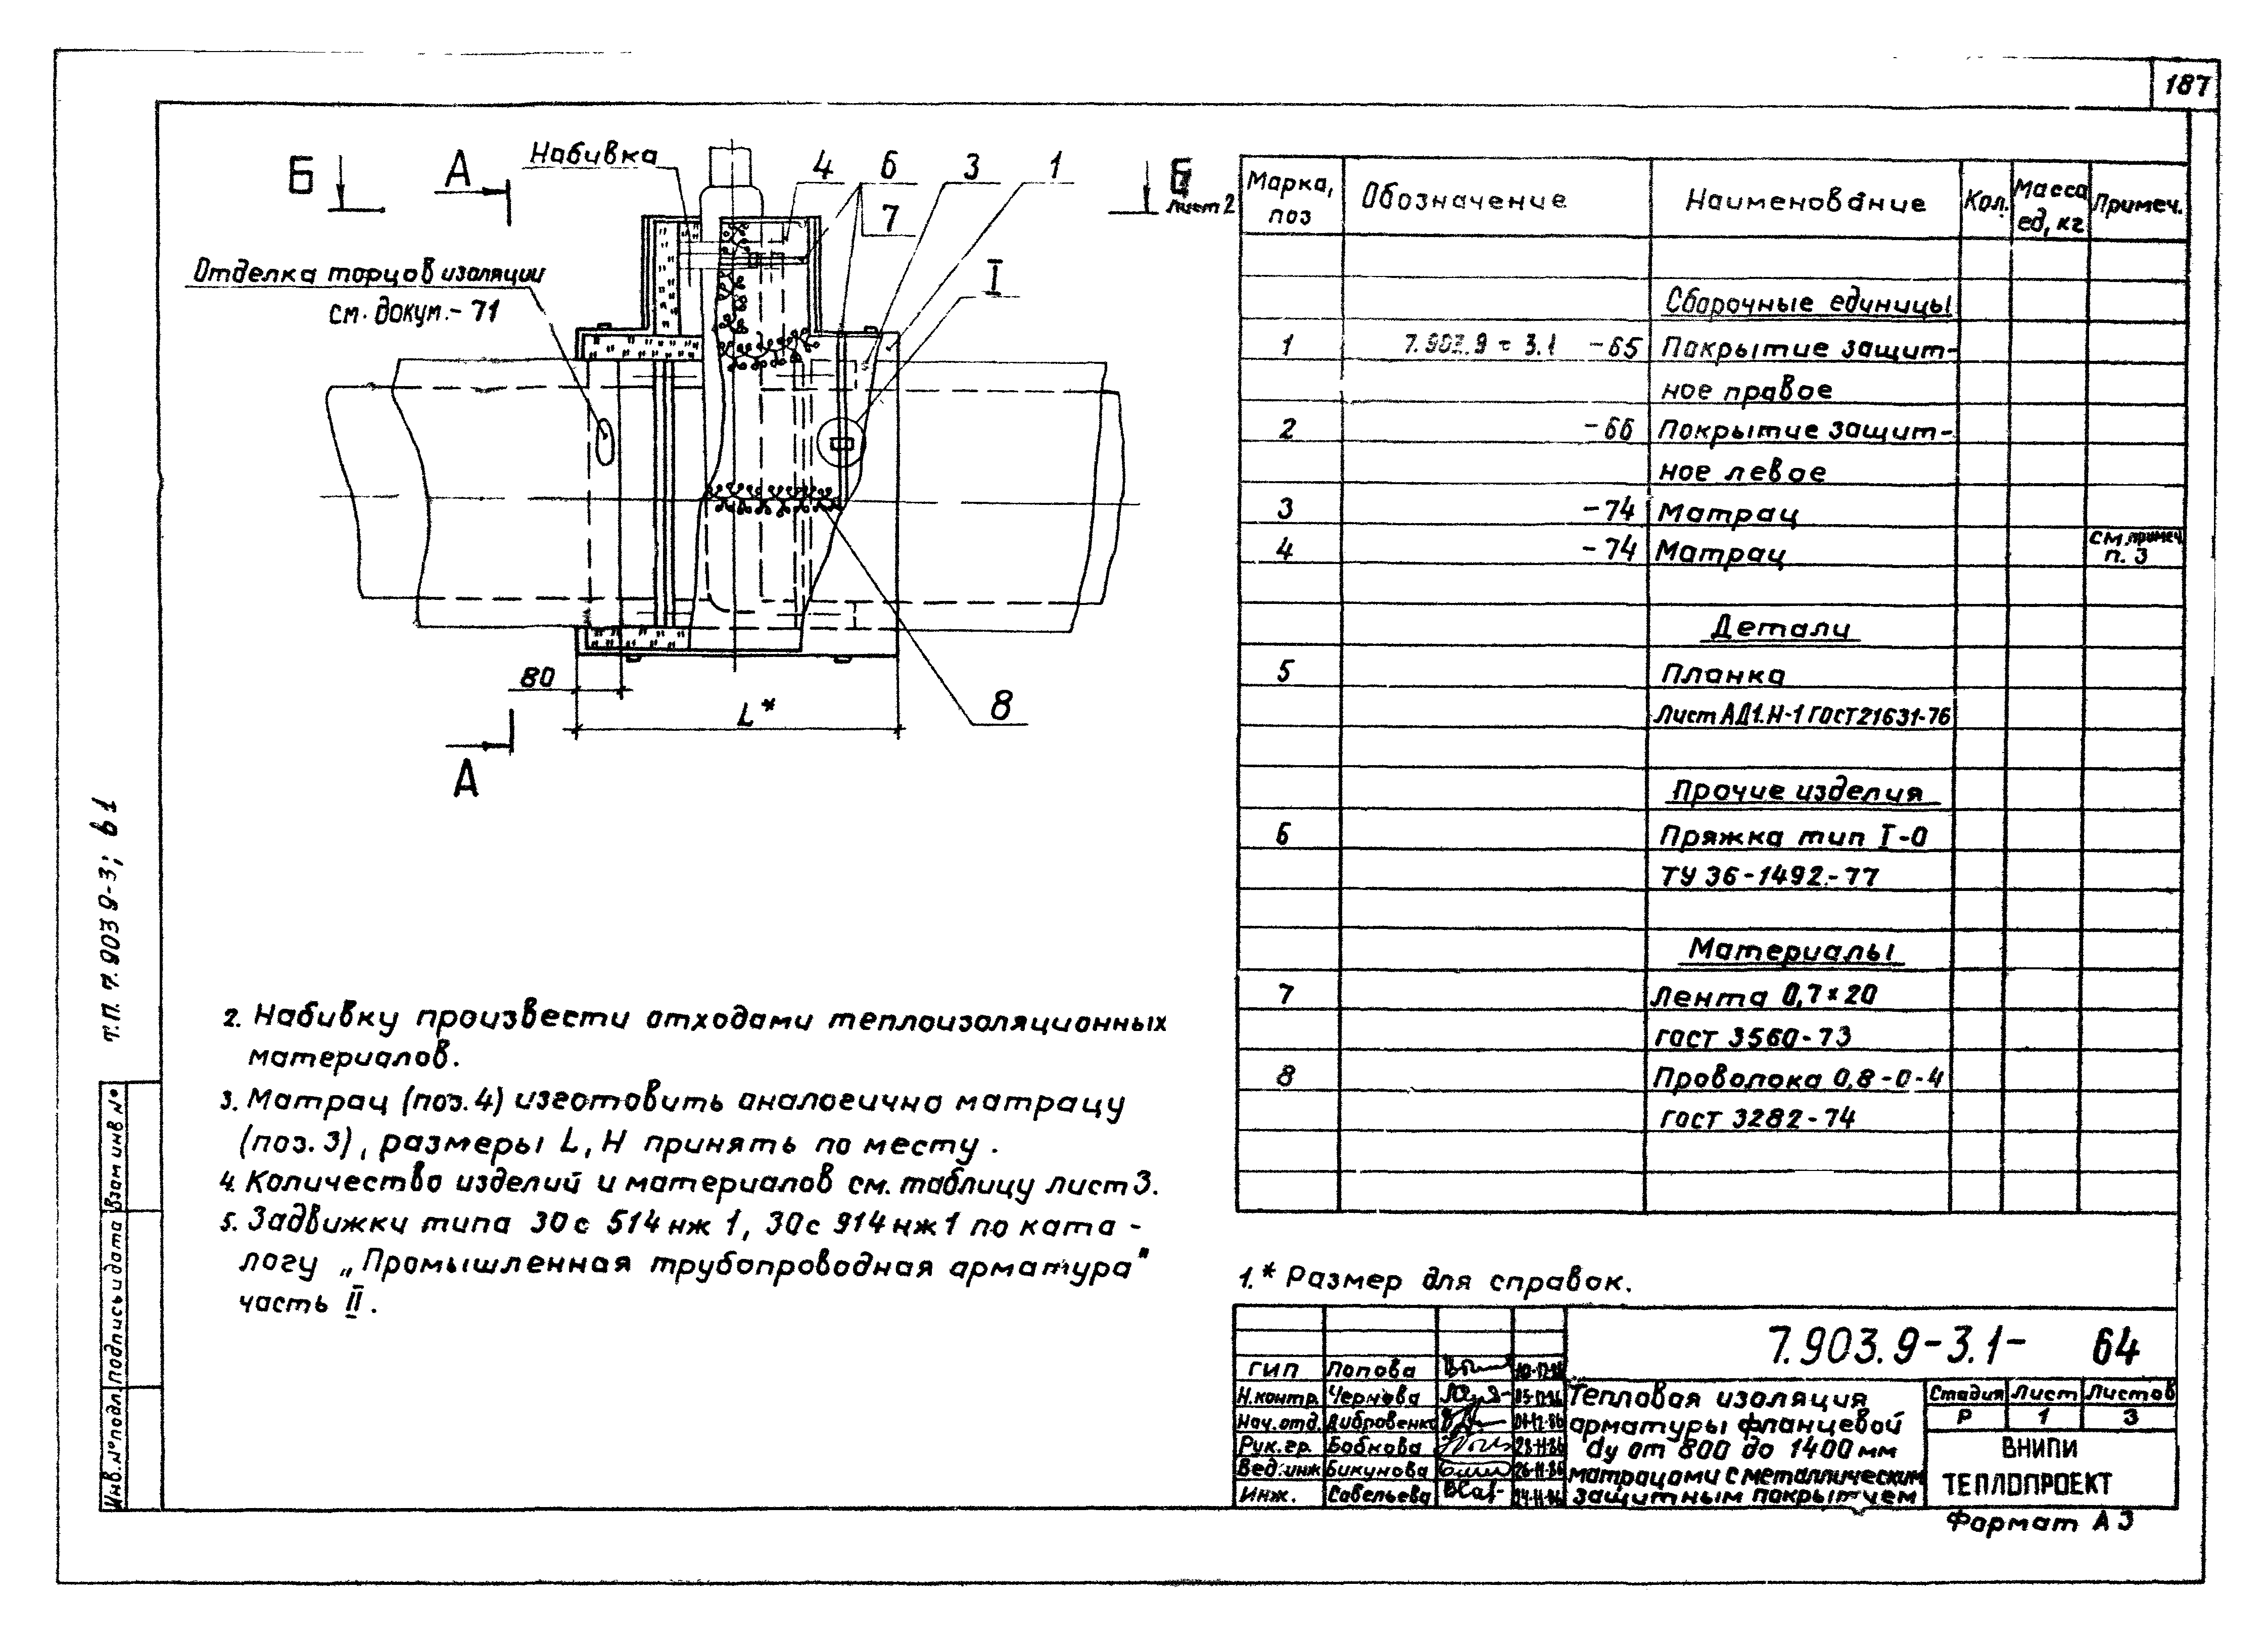 187
Б
А
Набивка
4
6
7
3
1
Б
лист 2
I
Отделка торцов изоляции
см. докум.- 71
80
L*
8
А
т.п. 7.903 9-3; в1
2. Набивку произвести отходами теплоизоляционных
материалов.
3. Матрац (поз. 4) изготовить аналогично матрацу
(поз. 3), размеры L, Н принять по месту.
4. Количество изделий и материалов см. таблицу лист 3.
5. Задвижки типа 30с 514 нж 1, 30с 914 нж 1 по ката-
логу „Промышленная трубопроводная арматура"
часть II.
Марка, поз Обозначение Наименование Кол. Масса ед, кг Примеч.
Сборочные единицы
1 7.903.9 - 3.1 -65 Покрытие защит-
ное правое
2 -66 Покрытие защит-
ное левое
3 -74 Матрац
4 -74 Матрац см. примеч. п. 3
Детали
5 Планка
Лист АД1.Н-1 ГОСТ 21631-76
Прочие изделия
6 Пряжка тип I-0
ТУ 36-1492-77
Материалы
7 Лента 0,7×20
гост 3560-73
8 Проволока 0,8-0-4
гост 3282-74
1.* Размер для справок.
7.903.9-3.1- 64
ГИП Попова
Н.контр. Чернова
Нач.отд. Дибровенко
Рук.гр. Бобкова 28-11-86
Вед.инж Бикунова 26-11-86
Инж. Савельева
Тепловая изоляция
арматуры фланцевой
dу от 800 до 1400 мм
матрацами с металлическим
защитным покрытием
Стадия Лист Листов
Р 1 3
ВНИПИ
ТЕПЛОПРОЕКТ
Формат А3
Взам инв №
Подпись и дата
Инв. № подл.